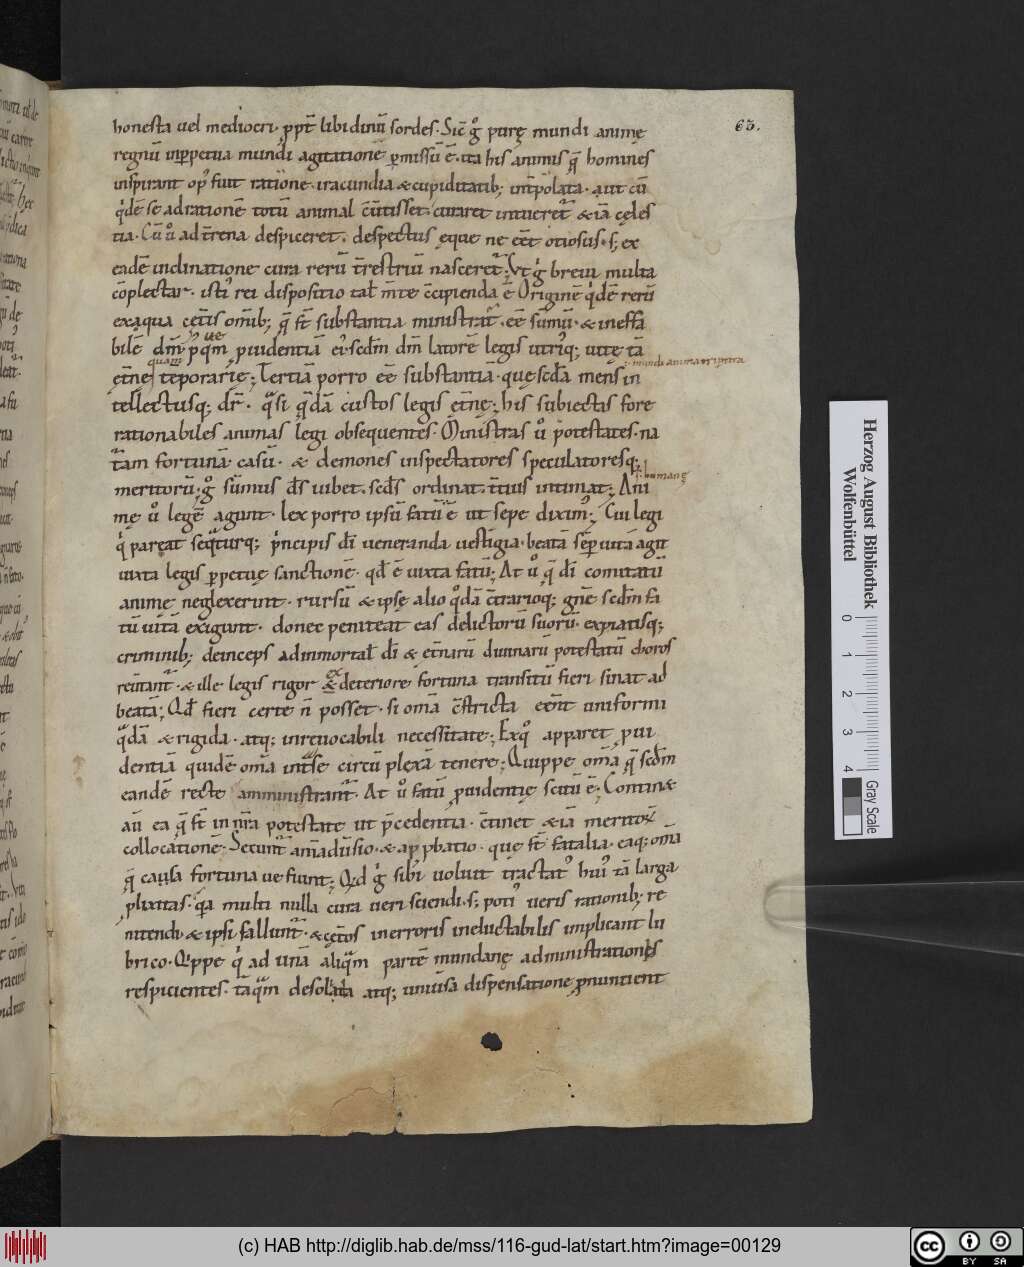 63.
honesta uel mediocri. ppt̄ libidinū sordes. Sic̄ g̊ purę mundi animę
regnū inppetua mundi agitatione ꝑmissū ē. ita his animis q̄ homines
inspirant op' fuit ratione. iracundia & cupiditatib; intp̄olata. aut cū
q̇dē se ad rationē totū animal c̄uertisset. curaret intueret̃ & iā cęles
tia. Cū ů ad t̄rena despiceret. despectus ęque ne eēt otiosus. s; ex
eadē inclinatione cura rerū t̄restriū nasceret̃; Vt g̊ breui multa
cōplectar. isti' rei dispositio tal̄ m̄te c̄cipienda ē Originē q̇dē rerū
exaqua cet̄is om̄ib; q̄ s̄t substantia ministrat̃. eē sūmū. & ineffa
bilē dm̄ p' q̄m puidentiā ei'. scdm̄ dm̄ latorē legis utri'q; uitę tā
quam
i. mundi anima tripertita
ęt̄ne tēporarię; Tertiā porro eē substantiā. quę scd̄a mens in
tellectusq; dr̄. q̄si q̄dā custos legis et̄nę; his subiectas fore
rationabiles animas legi obsequentes. Ministras ů potestates. na
t̄am fortunā casū. & demones inspectatores speculatoresq;
i. humanę
meritorū; g̊ sūmus d̄s iubet. scd̄s ordinat. t̄tius intimat; Ani
mę ů legē agunt. lex porro ipsū fatū ē ut sepe dixim'; Cui legi
q̇ pareat seq̄turq; p̄ncipis d̄i ueneranda uestigia. beatā sēp uitā agit
iuxta legis ppetuę sanctionē. qd̄ ē iuxta fatū; At ů q̄ d̄i comitatū
animę neglexerint. rursū & ipsę alio q̊dā c̄trarioq; gn̄e scdm̄ fa
tū uitā exigunt. donec peniteat eas delictorū suorū. expiatisq;
criminib; deinceps ad inmortal̄ d̄i & et̄narū diuinarū potestatū choros
reu̅tant̃. & ille legis rigor ex deteriore fortuna transitū fieri sinat ad
beatā; Qd̄ fieri certe n̄ posset. si om̄a c̄stricta eēnt uniformi
q̄dā & rigida. atq; inreuocabili necessitate; Ex q̊ apparet pui
dentiā quidē om̄a int̄ se circūplexā tenere; Quippe om̄a q̄ scdm̄
eandē recte amministrant̃. At ů fatū puidentię scitū ē; Continet
aū ea q̄ s̄t in nr̄a potestate ut p̄cedentia. c̄tinet & iā meritoꝝ
collocationē; Secunt̃ animaduersio. & approbatio. que s̄t fatalia. eaq; om̄ia
q̄ causa fortunaue fiunt; Qd g̊ sibi uoluit tractat' hui' tā larga
plixitas. q̄a multi nulla cura ueri sciendi. s; poti' ueris rationib; re
nitendi & ipsi fallunt̃. & cęt̄os in erroris ineluctabilis implicant lu
brico. Quippe q̇ ad unā aliq̄m partē mundanę administrationis
respicientes. tāq̄m desolata atq; uniu̅sa dispensatione pnuntient
Herzog August Bibliothek
Wolfenbüttel
0 1 2 3 4
Gray Scale
(c) HAB http://diglib.hab.de/mss/116-gud-lat/start.htm?image=00129
cc BY SA